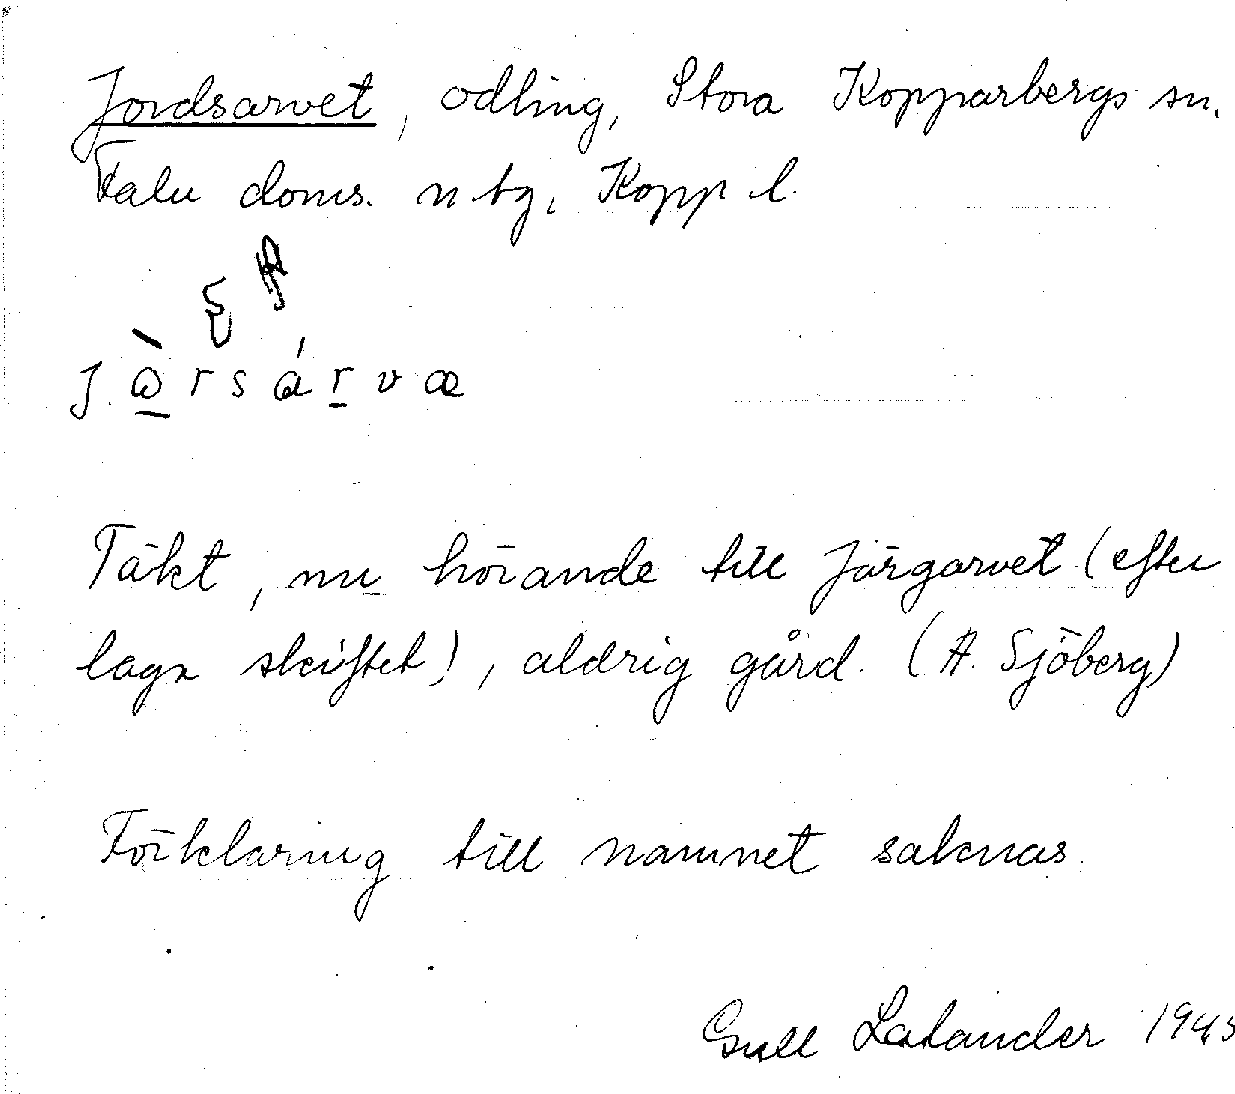 Jordsarvet, odling, Stora Kopparbergs sn.
Falu doms. n tg, Kopp l.
Täkt, nu hörande till Järgarvet (efter
laga skiftet), aldrig gård. (A. Sjöberg)
Förklaring till namnet saknas.
Gull Lalander 1943